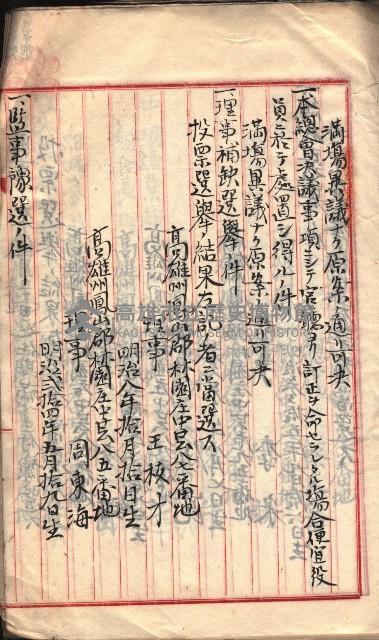 満場異議ナク原案ノ通リ可決
一、本總會決議事項ニシテ官廳ヨリ訂正ヲ命セラレタル場合便宜役
員ニ於テ處置シ得ルノ件
満場異議ナク原案ノ通リ可決
一、理事補缺選擧ノ件
投票選擧ノ結果左記ノ者ニ當選ス
高雄州鳳山郡林園庄中芸八七番地
理事 王板才
明治八年拾月拾日生
高雄州鳳山郡林園庄中芸八五番地
理事 周東海
明治貳拾四年五月拾九日生
一、監事豫選ノ件